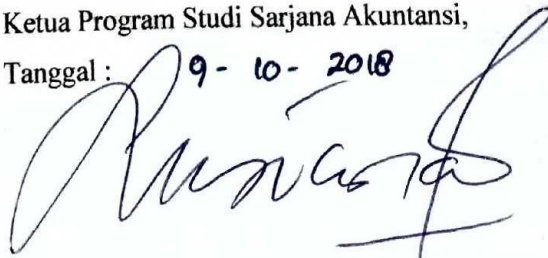 Ketua Program Studi Sarjana Akuntansi,
Tanggal : 9 - 10 - 2018